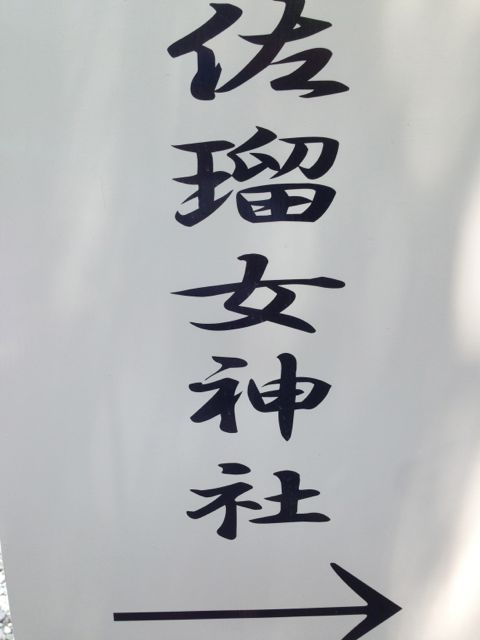 佐瑠女神社